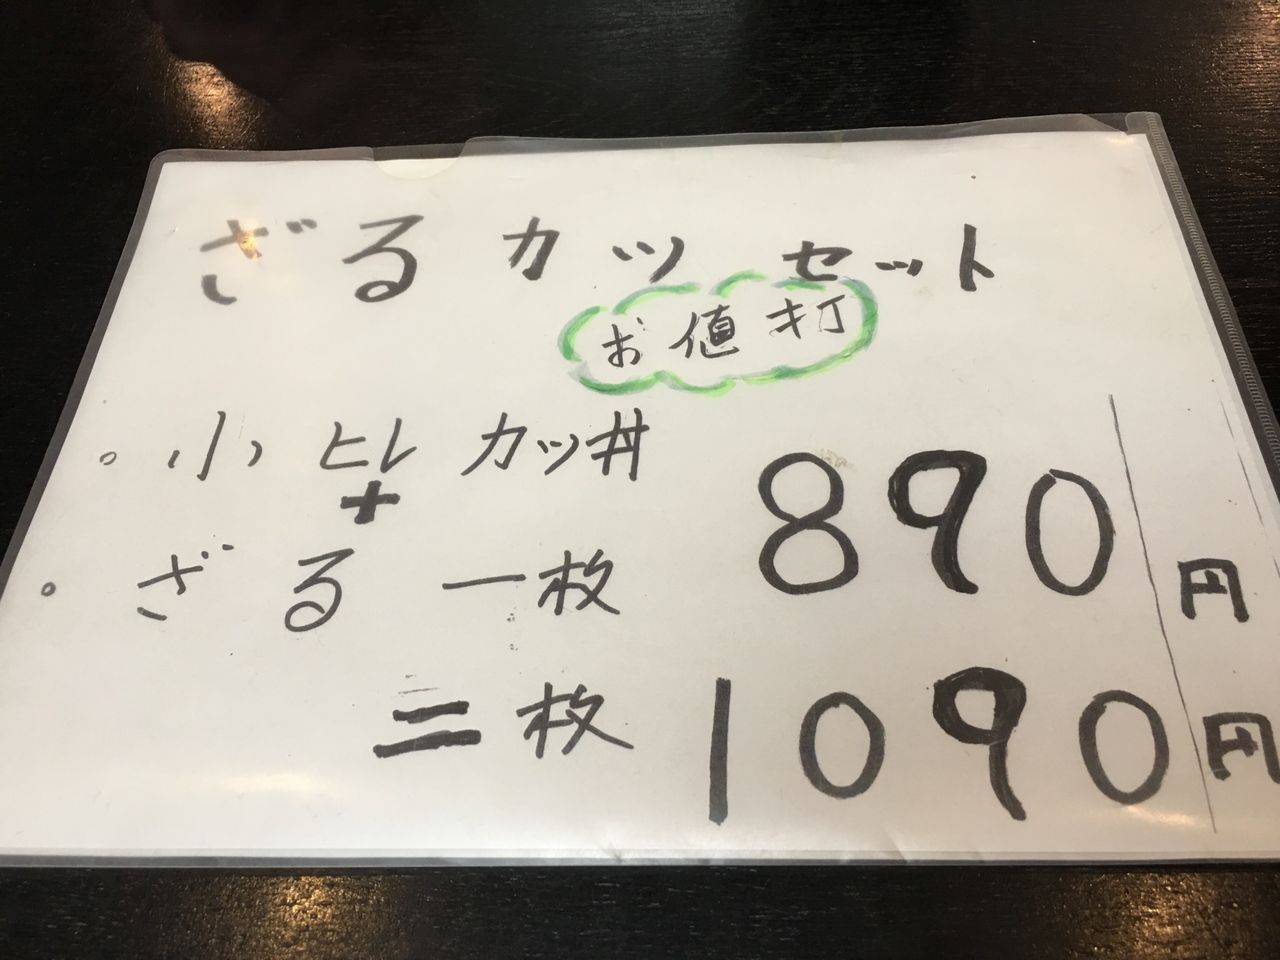 ざるカツセット
お値打
。小ヒレカツ丼
+
。ざる一枚 890円
二枚 1090円